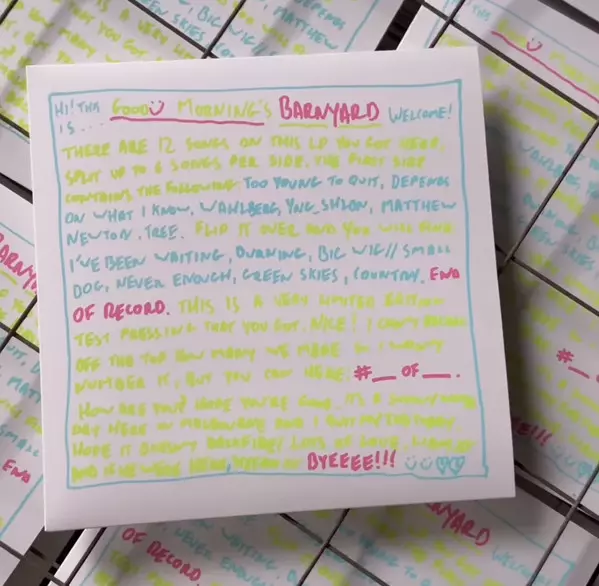 HI! THIS IS.... GOOD MORNING'S BARNYARD WELCOME!
THERE ARE 12 SONGS ON THIS LP YOU GOT HERE.
SPLIT UP TO 6 SONGS PER SIDE, THE FIRST SIDE
CONTAINS THE FOLLOWING TOO YOUNG TO QUIT, DEPENDS
ON WHAT I KNOW, WAHLBERG, YNG_SHLDN, MATTHEW
NEWTON, TREE. FLIP IT OVER AND YOU WILL FIND
I'VE BEEN WAITING, BURNING, BIG WIG // SMALL
DOG, NEVER ENOUGH, GREEN SKIES, COUNTRY. END
OF RECORD. THIS IS A VERY LIMITED EDITION
TEST PRESSING THAT YOU GOT. NICE! I CAN'T
OFF THE TOP HOW MANY WE MADE SO I WON'T
NUMBER IT, BUT YOU CAN HERE #__ OF __.
HOW ARE YOU? HOPE YOU'RE GOOD. IT'S A
DAY HERE IN MELBOURNE AND I
HOPE IT DOESN'T BACKFIRE! LOTS OF LOVE,
BYEEEE!!!